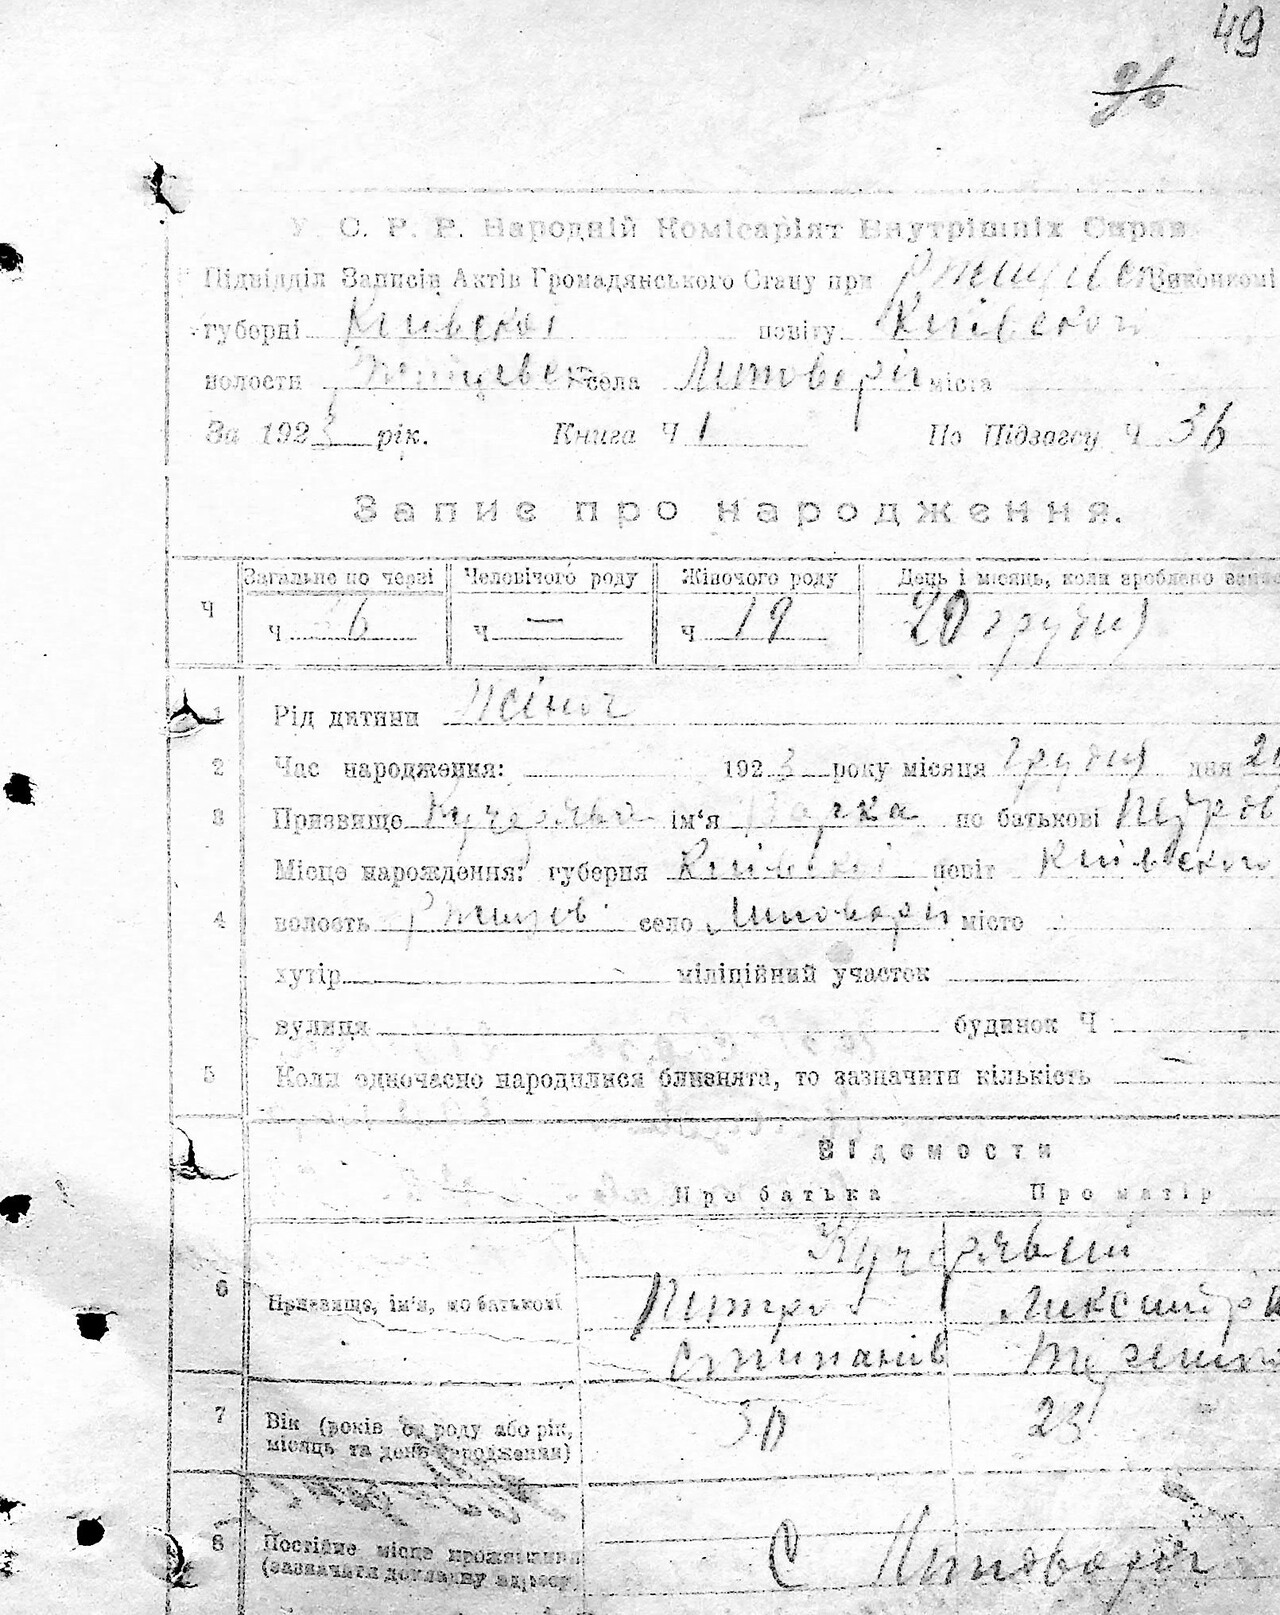 49
У. С. Р. Р. Народній Комісаріят Внутрішніх Справ
Підвідділ Записів Актів Громадянського Стану при Ржищівск Виконкомі
губерні Київскої повіту Київскої
волости Ржищевск села Литовари міста
За 1923 рік. Книга Ч 1 По Підзагсу Ч 36
Запис про народження.
Загальне по черзі Человічого роду Жіночого роду День і місяць, коли зроблено запис
Ч Ч 6 Ч — Ч 19 20 грудня
1 Рід дитини
2 Час народження: 1923 року місяця грудня дня 20
3 Призвище ім'я Варка по батькові Петров
Місце нарождення: губерня Київскої повіт Київского
4 волость Ржищев село Литовари місто
хутір міліційний участок
вулиця будинок Ч
5 Коли одночасно народилися близнята, то зазначити кількість —
Відомости
Про батька Про матір
Кучерявий
6 Призвище, ім'я, по батькові Питро
Стипанів
7 Вік (років од роду або рік, 30 23
місяць та день народження)
8 Постійне місце проживання С Литовари
(зазначити докладну адресу)